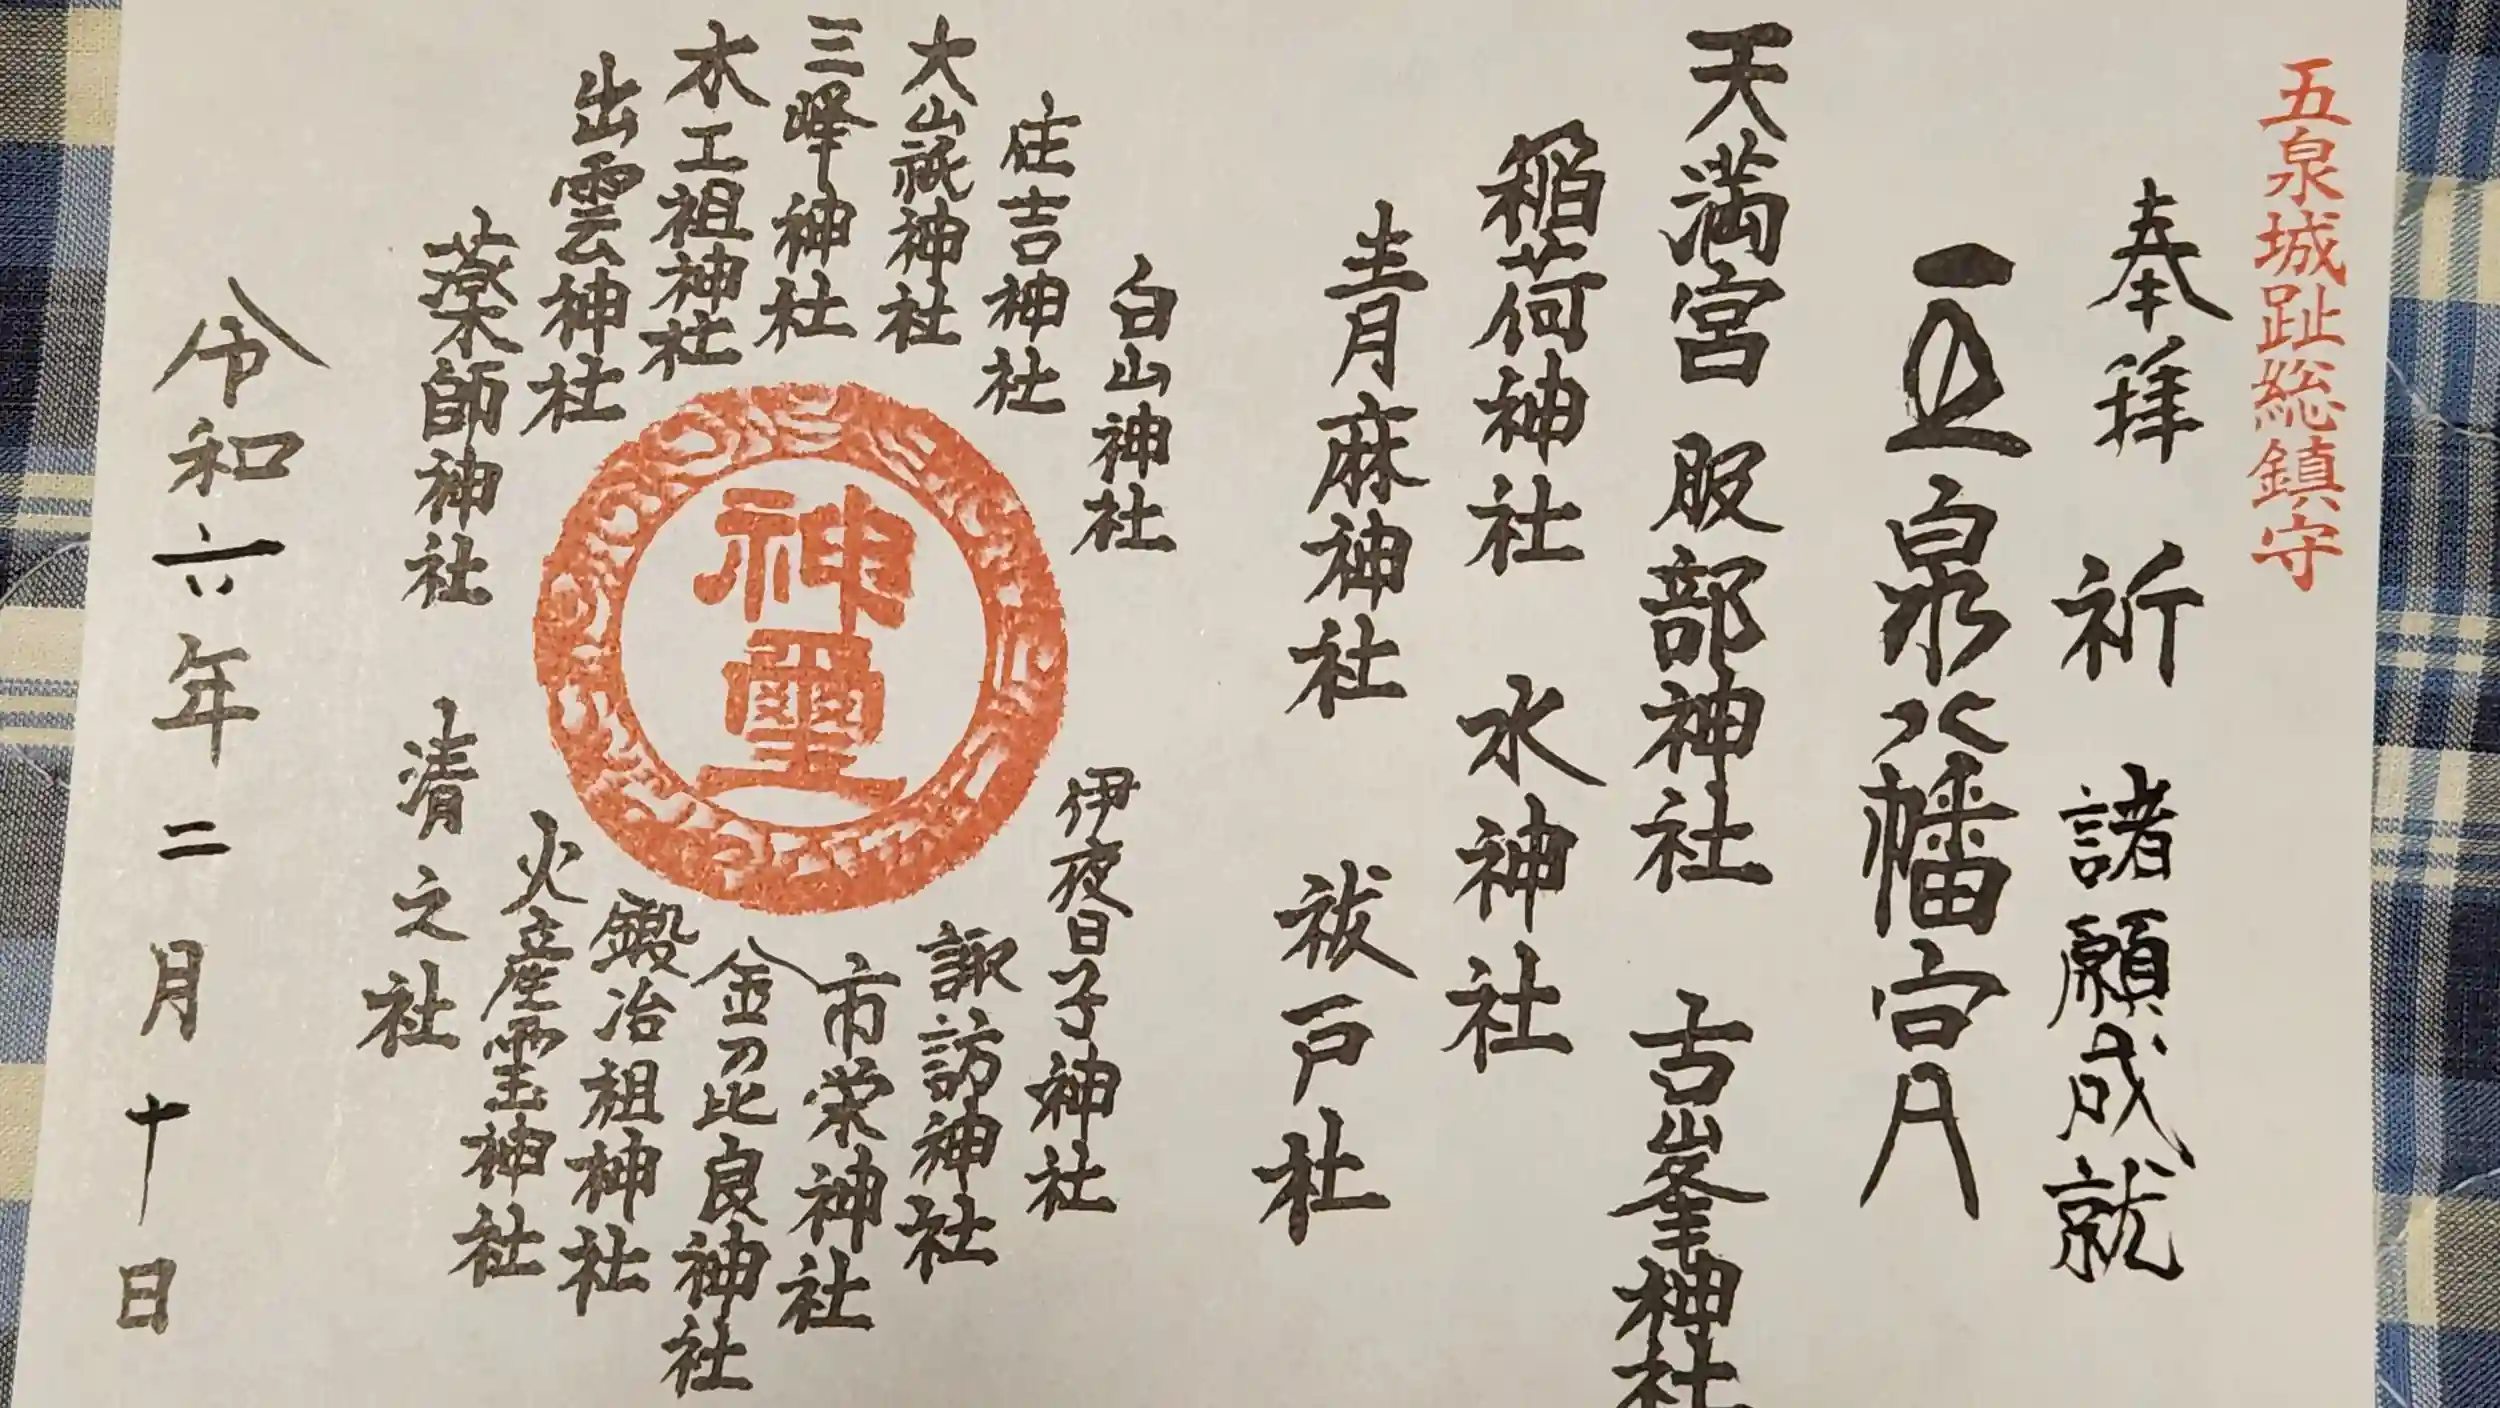 五泉城趾総鎮守
奉拝 祈 諸願成就
五泉八幡宮
天満宮 服部神社 古峯神社
稲荷神社 水神社
青麻神社 祓戸社
白山神社 伊夜日子神社
住吉神社 諏訪神社
大山祇神社 市栄神社
三峰神社 金刀比良神社
木工祖神社 鍛冶祖神社
出雲神社 火産霊神社
薬師神社 清之社
神璽
令和六年二月十日